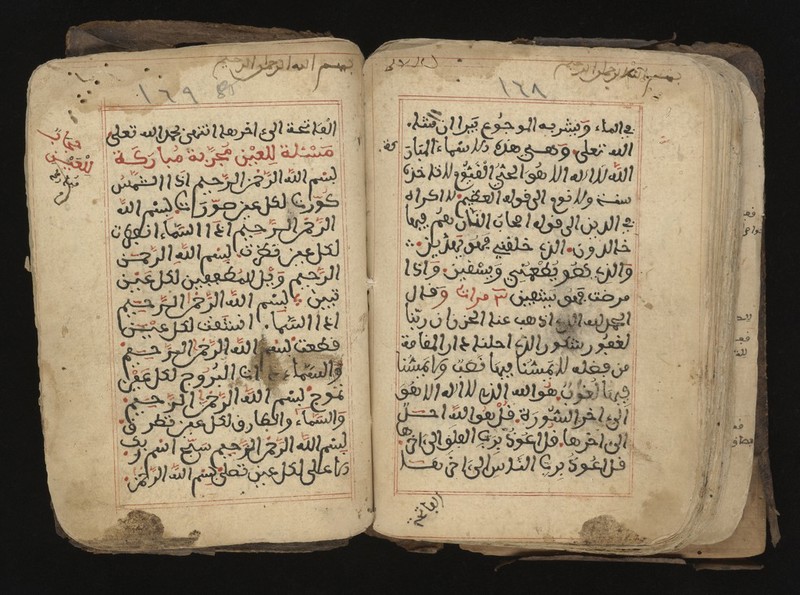 بسم الله الرحمن الرحيم
١٦٨
في الماء ويشربه الموجوع يبرا ان شاء
الله تعلى وهي هذه ولاسماء النار
الله لا اله الا هو الحي القيوم لا تاخذه
سنة ولا نوم الى قوله العظيم لا اكراه
في الدين الى قوله اصحاب النار هم فيها
خالدون الذي خلقني فهو يهدين
والذي هو يطعمني ويسقين واذا
مرضت فهو يشفين ٣ مرات وقال
الحمد لله الذي اذهب عنا الحزن ان ربنا
لغفور شكور الذي احلنا دار المقامة
من فضله لا يمسنا فيها نصب ولا يمسنا
فيها لغوب هو الله الذي لا اله الا هو
الى اخر السورة قل هو الله احد
الى اخرها قل اعوذ برب الفلق الى اخرها
قل اعوذ برب الناس الى اخرها
الفاتحة
بسم الله الرحمن الرحيم
١٦٩
الفاتحة الى اخرها انتهى بحمد الله تعلى
مسئلة للعين مجربة مباركة
بسم الله الرحمن الرحيم اذا الشمس
كورت لكل عين بسم الله
الرحمن الرحيم اذا السماء انفطرت
لكل عين بسم الله الرحمن
الرحيم ويل للمطففين لكل عين
بسم الله الرحمن الرحيم
اذا السماء انشقت لكل عين
بسم الله الرحمن الرحيم
والسماء ذات البروج لكل عين
بسم الله الرحمن الرحيم
والسماء والطارق لكل عين
بسم الله الرحمن الرحيم سبح اسم ربك
الاعلى لكل عين بسم الله الرحمن
حجاب
للعين